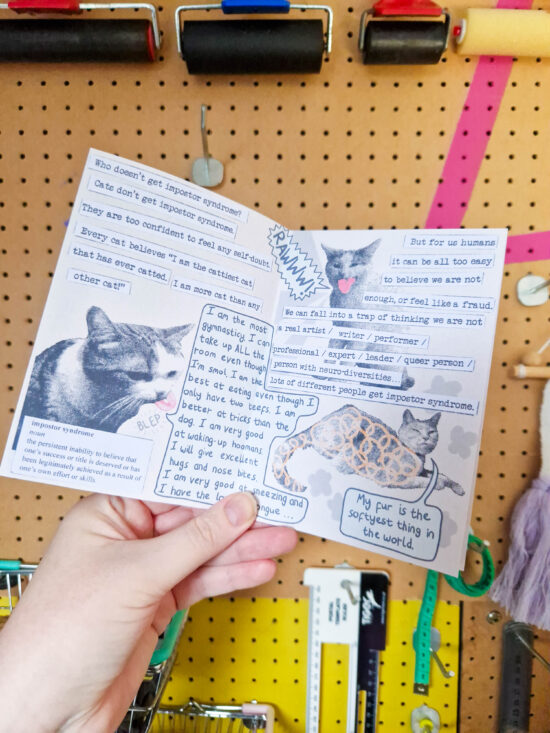 Who doesn't get impostor syndrome?
Cats don't get impostor syndrome.
They are too confident to feel any self-doubt.
Every cat believes "I am the cattiest cat
that has ever catted. I am more cat than any
other cat!"
BLEP
impostor syndrome
noun
the persistent inability to believe that
one's success or title is deserved or has
been legitimately achieved as a result of
one's own effort or skills.
I am the most
gymnasticy. I can
take up ALL the
room even though
I'm smol. I am the
best at eating even though I
only have two teefs. I am
better at tricks than the
dog. I am very good
at waking up hoomans.
I will give excellent
hugs and nose bites.
I am very good at sneezing and
I have the tongue...
RAWWW!
But for us humans
it can be all too easy
to believe we are not
enough, or feel like a fraud.
We can fall into a trap of thinking we are not
a real artist / writer / performer /
professional / expert / leader / queer person /
person with neuro-diversities...
lots of different people get impostor syndrome.
My fur is the
softyest thing in
the world.
POSTAL
TEMPLATE
RULER